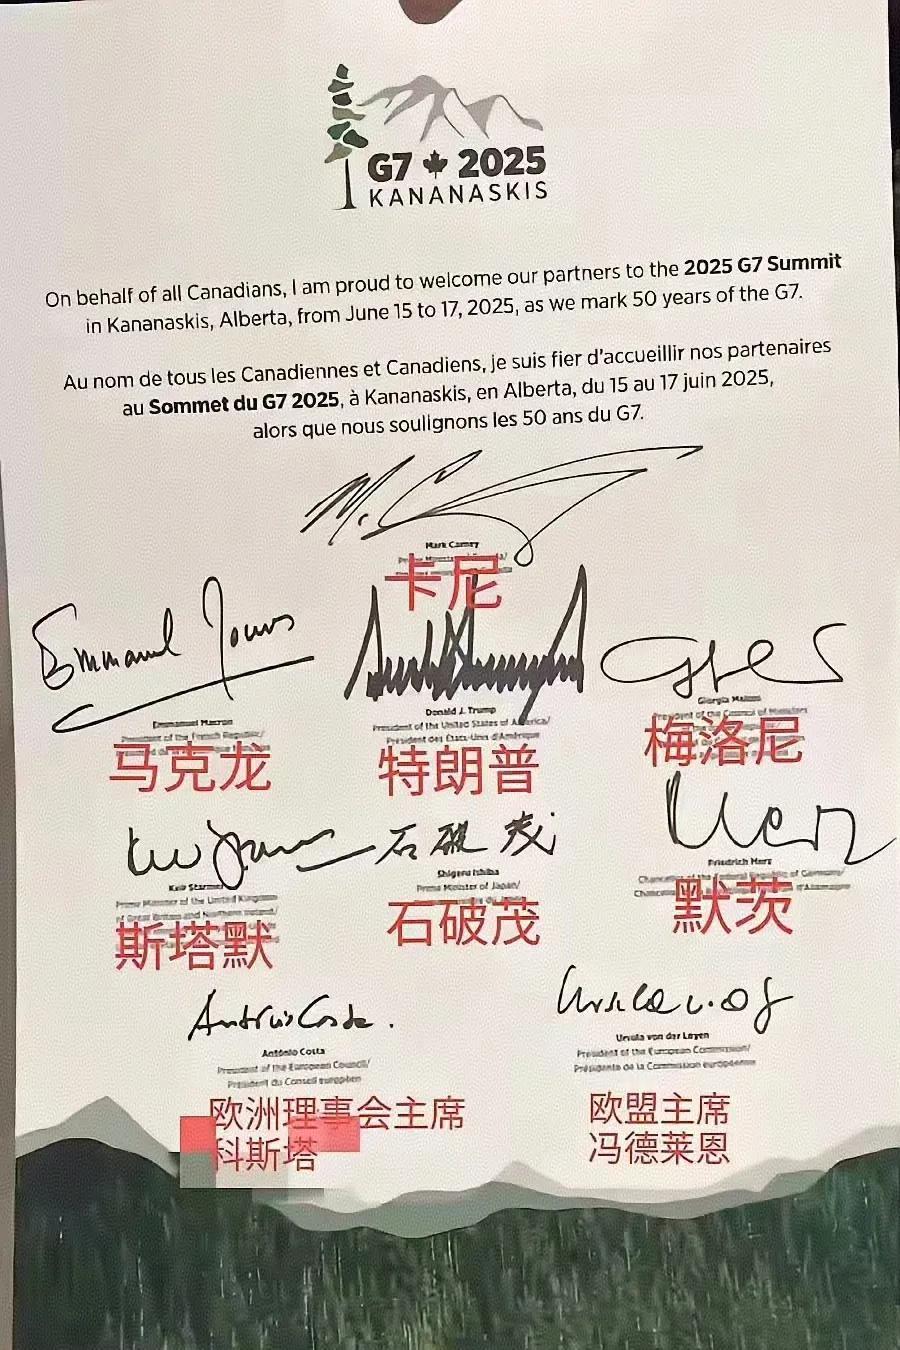 G7 2025
KANANASKIS
On behalf of all Canadians, I am proud to welcome our partners to the 2025 G7 Summit
in Kananaskis, Alberta, from June 15 to 17, 2025, as we mark 50 years of the G7.
Au nom de tous les Canadiennes et Canadiens, je suis fier d'accueillir nos partenaires
au Sommet du G7 2025, à Kananaskis, en Alberta, du 15 au 17 juin 2025,
alors que nous soulignons les 50 ans du G7.
M. C
Mark Carney
卡尼
Emmanuel
Emmanuel Macron
President of the French Republic/
马克龙
Donald J. Trump
President of the United States of America/
Président des États-Unis d'Amérique
特朗普
Giorgia Meloni
President of the Council of Ministers
梅洛尼
Keir Starmer
Prime Minister of the United Kingdom
of Great Britain and Northern Ireland/
斯塔默
石破茂
Shigeru Ishiba
Prime Minister of Japan/
石破茂
Merz
Friedrich Merz
Chancellor of the Federal Republic of Germany/
默茨
António Costa.
António Costa
President of the European Council/
Président du Conseil européen
欧洲理事会主席
科斯塔
Ursula von der Leyen
President of the European Commission/
Présidente de la Commission européenne
欧盟主席
冯德莱恩